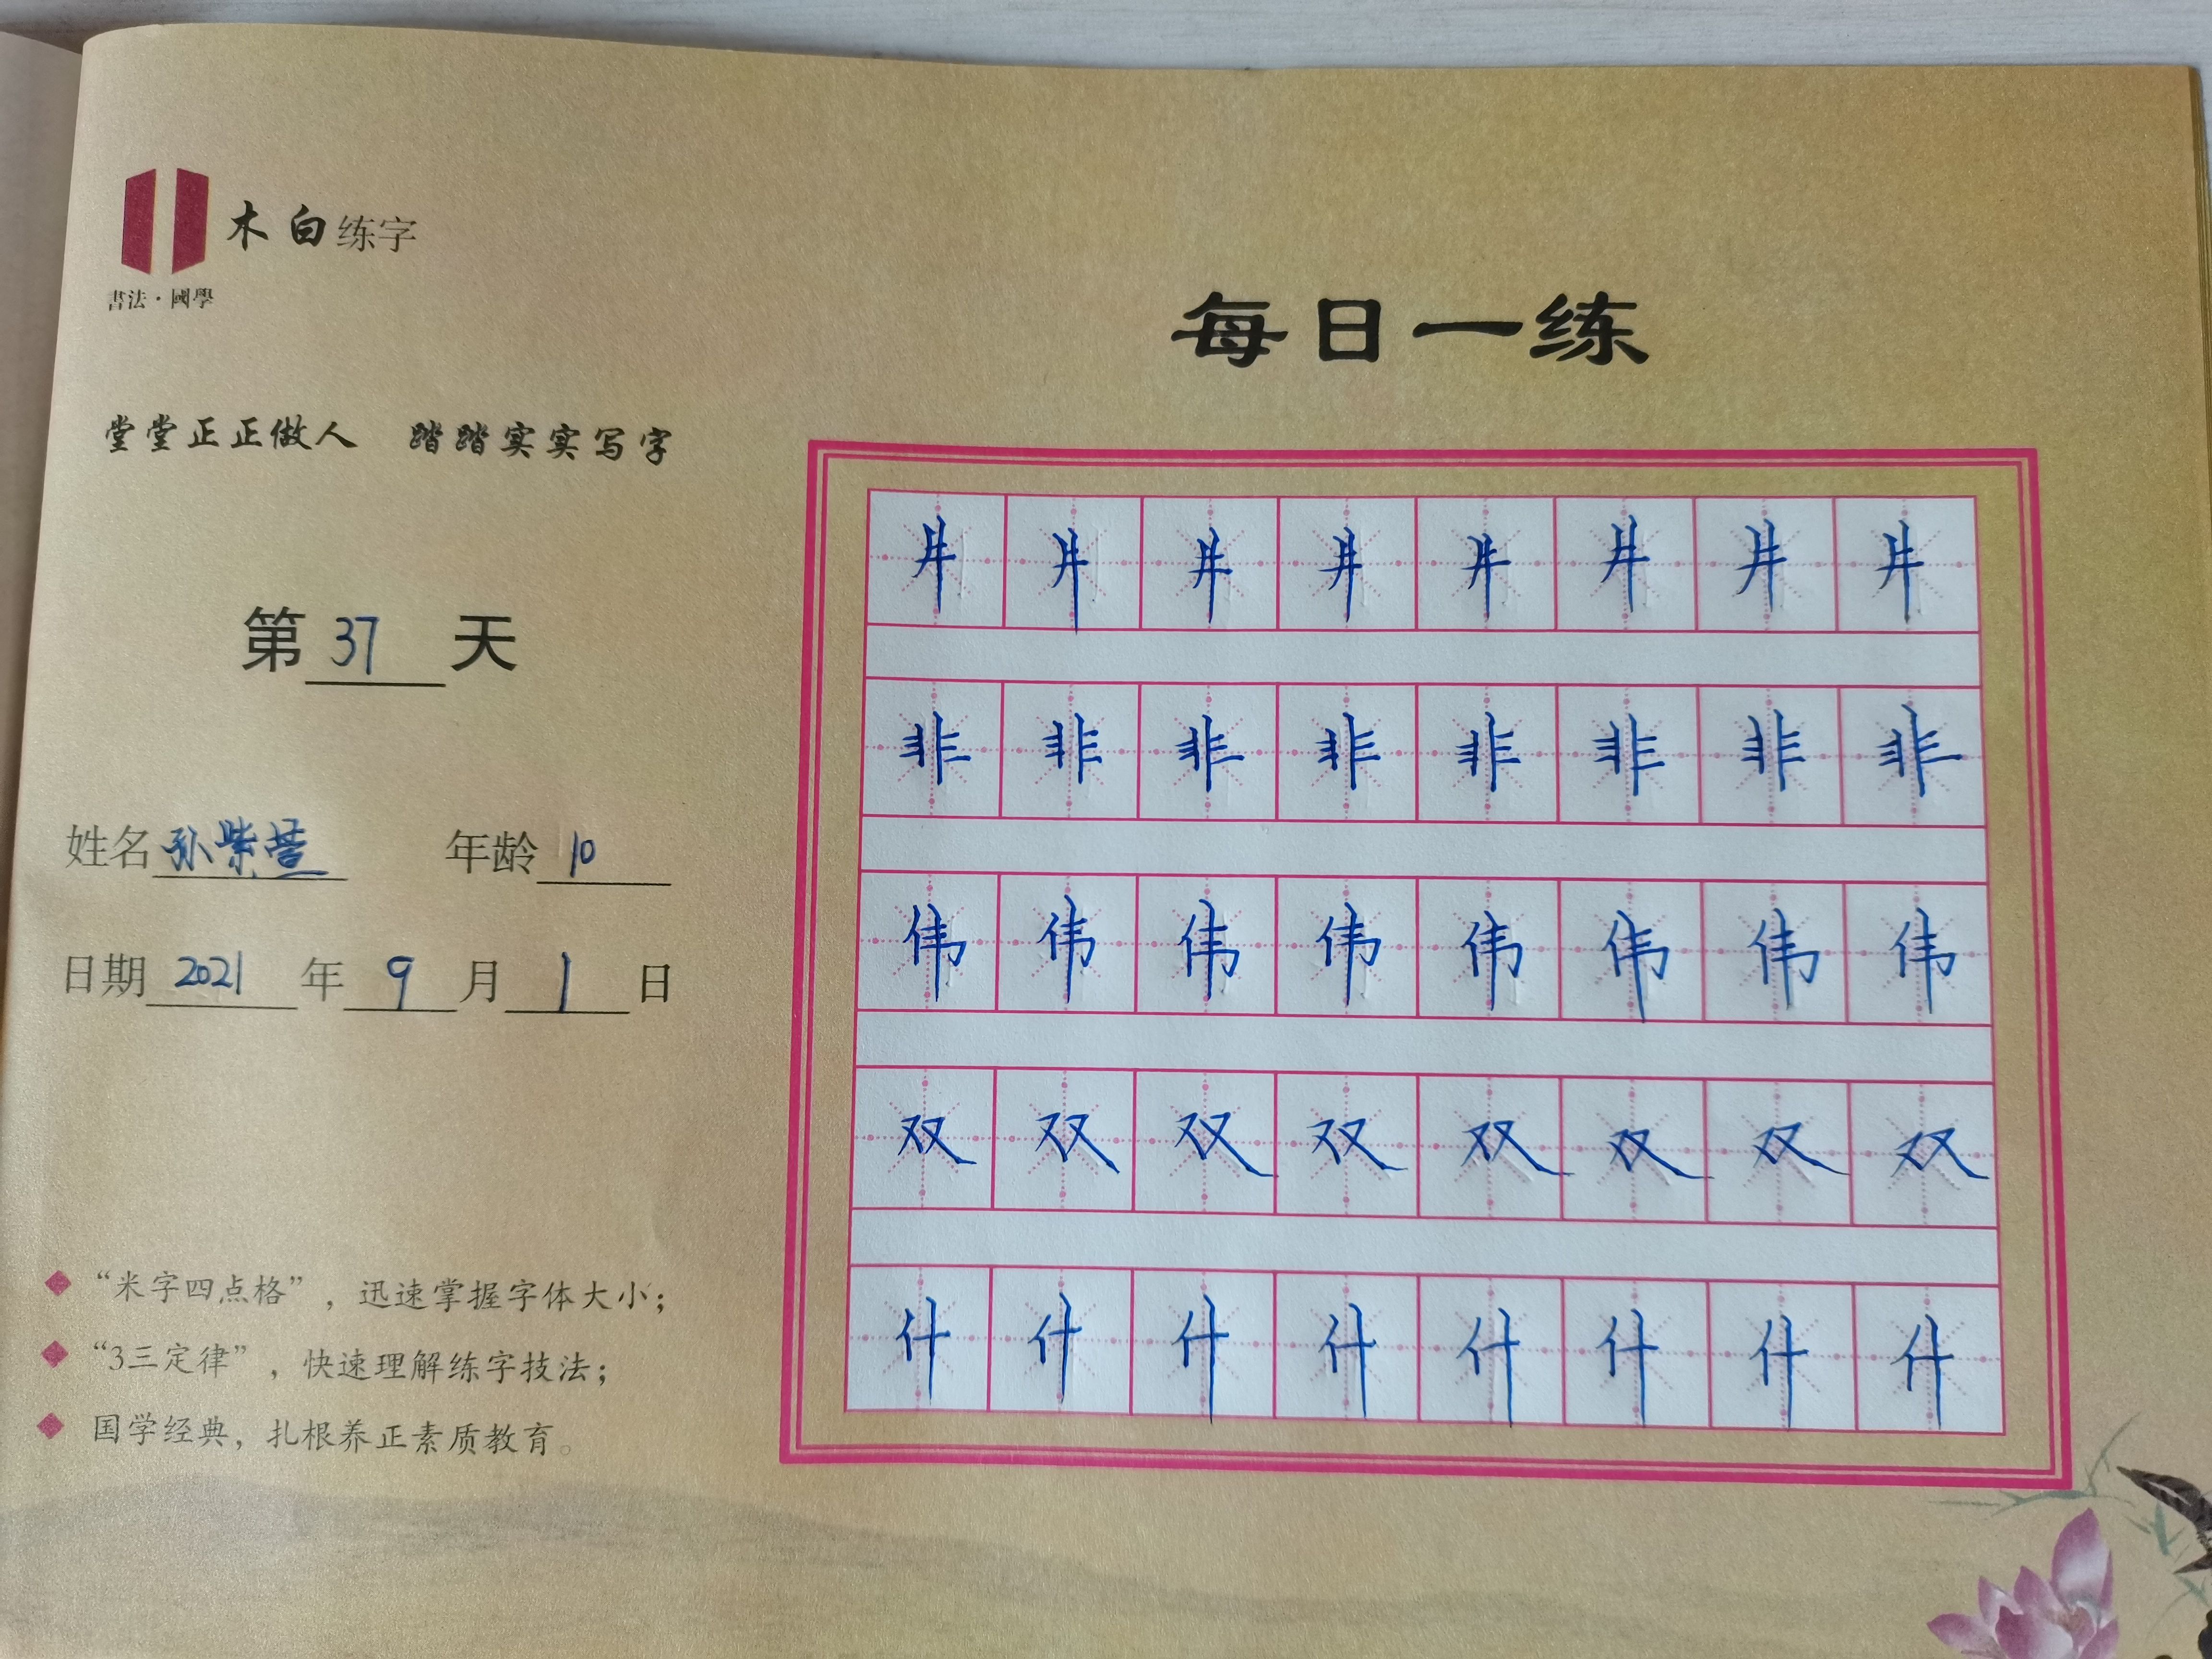 木白练字
書法·國學
每日一练
堂堂正正做人 踏踏实实写字
第 37 天
姓名 孙紫萱 年龄 10
日期 2021 年 9 月 1 日
“米字四点格”，迅速掌握字体大小；
“3三定律”，快速理解练字技法；
国学经典，扎根养正素质教育。
井 井 井 井 井 井 井 井
非 非 非 非 非 非 非 非
伟 伟 伟 伟 伟 伟 伟 伟
双 双 双 双 双 双 双 双
什 什 什 什 什 什 什 什